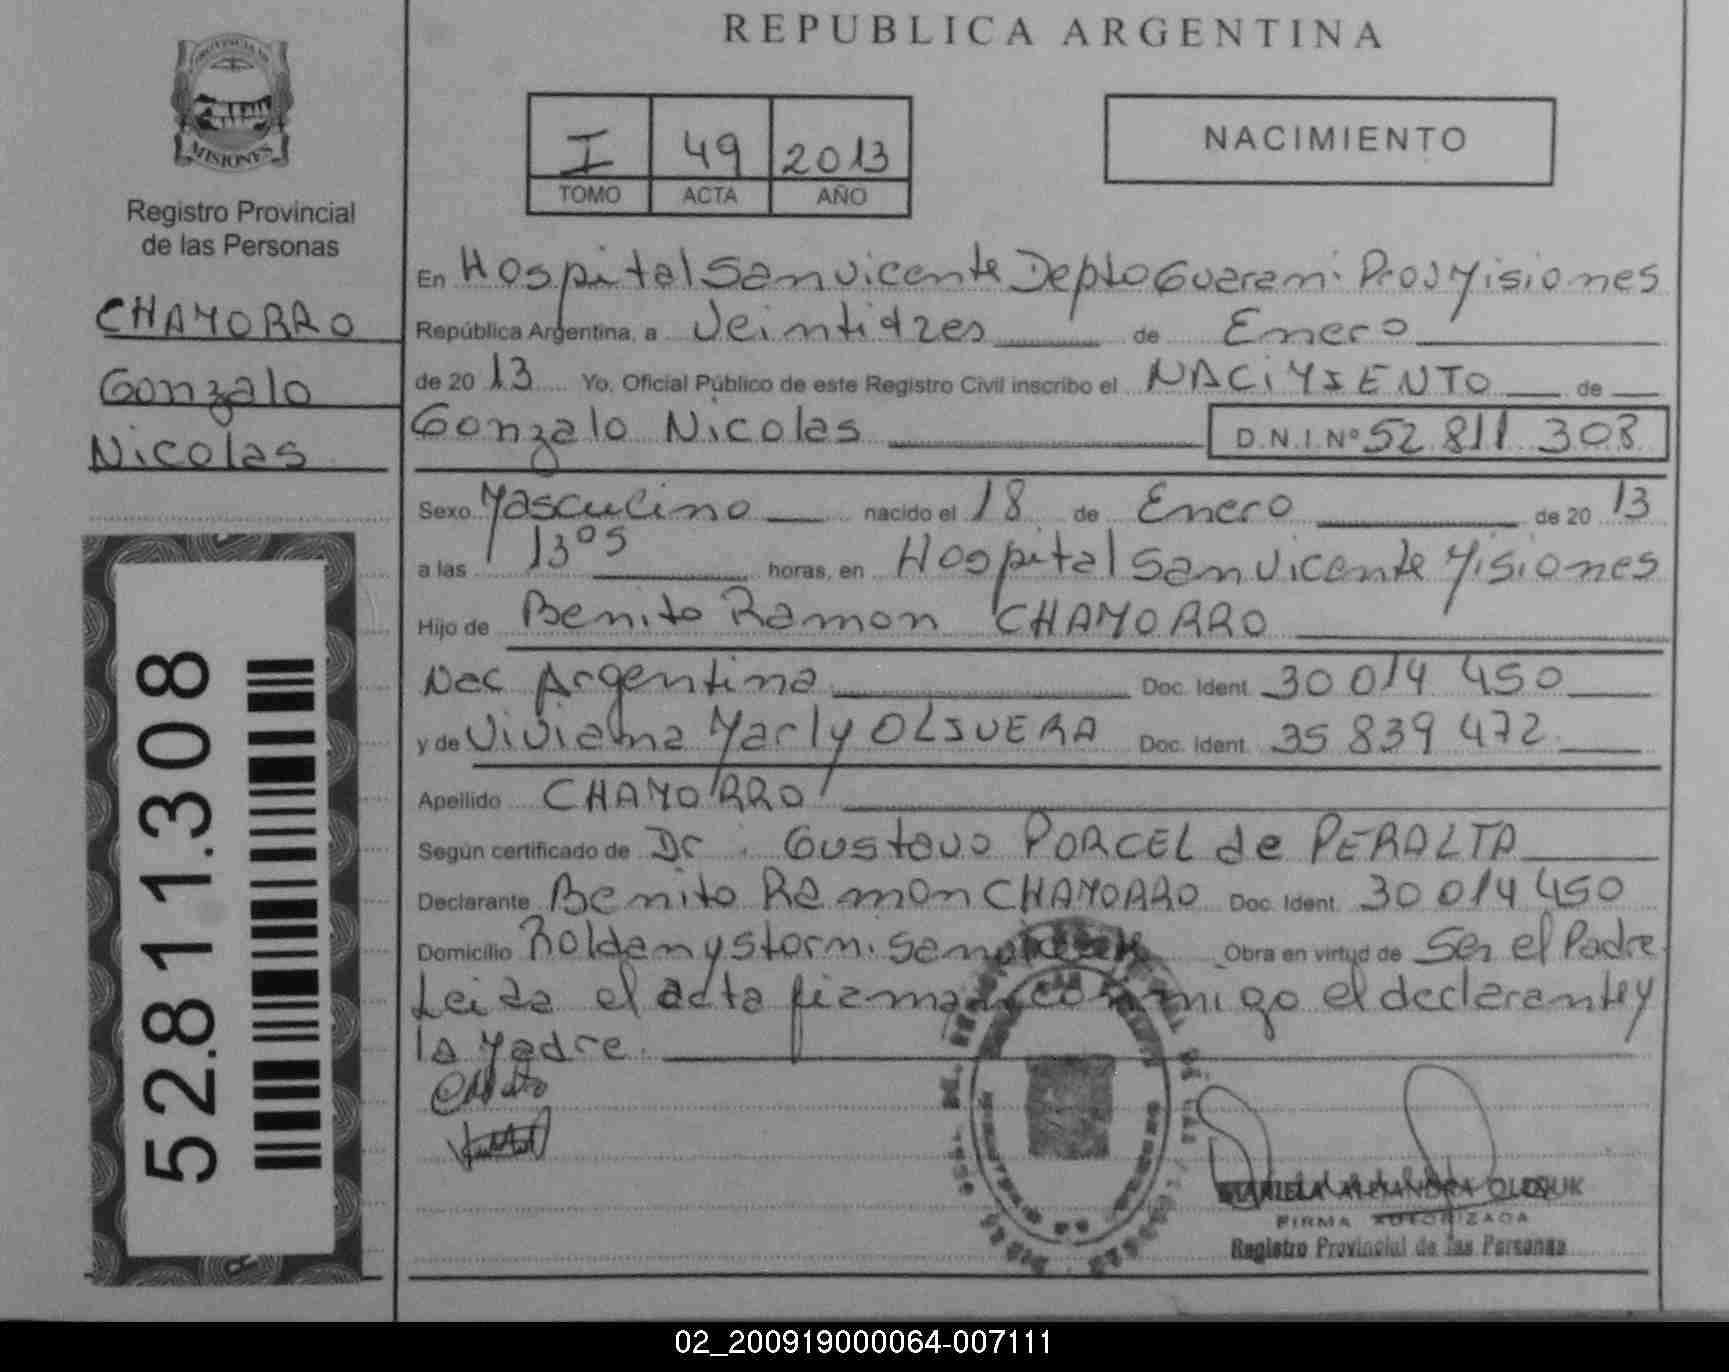 REPUBLICA ARGENTINA
PROVINCIA DE
MISIONES
Registro Provincial
de las Personas
CHAMORRO
Gonzalo
Nicolas
52.811.308
I 49 2013
TOMO ACTA AÑO
NACIMIENTO
En Hospital San Vicente Depto Guarani Prov Misiones
República Argentina, a Veintitres de Enero
de 2013 Yo, Oficial Público de este Registro Civil inscribo el NACIMIENTO de
Gonzalo Nicolas D.N.I. Nº 52 811 308
Sexo Masculino nacido el 18 de Enero de 2013
a las 13 05 horas, en Hospital San Vicente Misiones
Hijo de Benito Ramon CHAMORRO
Nac Argentina Doc. Ident. 30 014 450
y de Viviana Marly OLIVERA Doc. Ident. 35 839 472
Apellido CHAMORRO
Según certificado de Dr. Gustavo PORCEL de PERALTA
Declarante Benito Ramon CHAMORRO Doc. Ident. 30 014 450
Domicilio Roldan y Storni. San Obra en virtud de Ser el Padre.
Leida el acta firman conmigo el declarante y
la Madre.
ALEJANDRA
FIRMA AUTORIZADA
Registro Provincial de las Personas
02_200919000064-007111